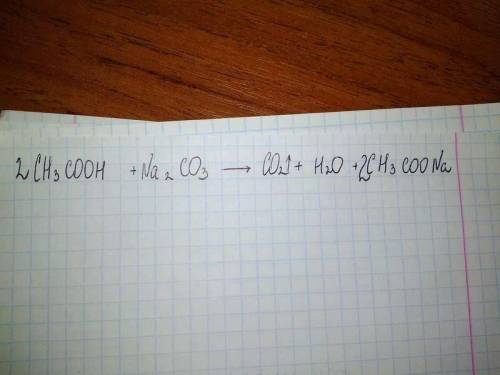 2CH₃COOH + Na₂CO₃ → CO₂↑ + H₂O + 2CH₃COONa